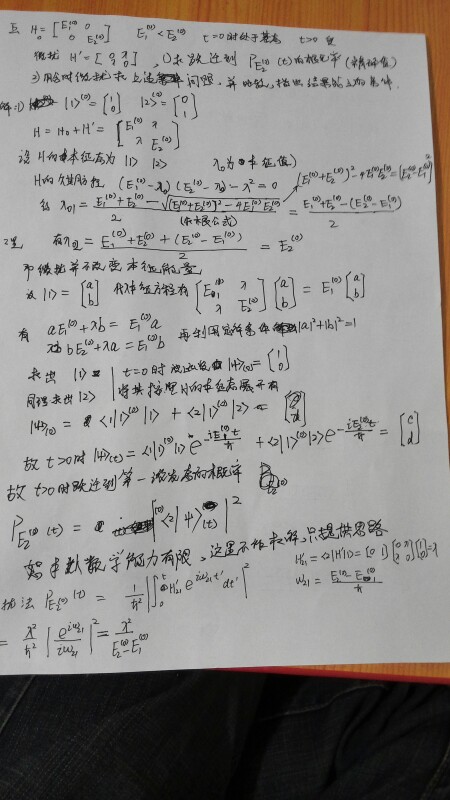 五 H₀ = [E₁⁽⁰⁾ 0; 0 E₂⁽⁰⁾] E₁⁽⁰⁾ < E₂⁽⁰⁾ t=0时处于基态 t>0受
微扰 H' = [0 λ; λ 0], ①求跃迁到 P_E₂⁽⁰⁾(t)的概率(精确解)
②用含时微扰求上述问题, 并比较, 指出结果成立条件.
解:① |1>⁽⁰⁾ = [1; 0] |2>⁽⁰⁾ = [0; 1]
H = H₀ + H' = [E₁⁽⁰⁾ λ; λ E₂⁽⁰⁾]
设H的本征态为 |1> |2> λ₀为本征值)
H的久期方程 (E₁⁽⁰⁾-λ₀)(E₂⁽⁰⁾-λ₀)-λ² = 0
λ₀₁ = (E₁⁽⁰⁾+E₂⁽⁰⁾-√([E₁⁽⁰⁾+E₂⁽⁰⁾]²-4E₁⁽⁰⁾E₂⁽⁰⁾))/2 = (E₁⁽⁰⁾+E₂⁽⁰⁾-(E₂⁽⁰⁾-E₁⁽⁰⁾))/2
(求根公式)
(E₁⁽⁰⁾+E₂⁽⁰⁾)²-4E₁⁽⁰⁾E₂⁽⁰⁾=(E₂⁽⁰⁾-E₁⁽⁰⁾)²
有λ₀₂ = (E₁⁽⁰⁾+E₂⁽⁰⁾+(E₂⁽⁰⁾-E₁⁽⁰⁾))/2 = E₂⁽⁰⁾
即微扰并不改变本征能量
设 |1> = [a; b] 代本征方程有 [E₁⁽⁰⁾ λ; λ E₂⁽⁰⁾] [a; b] = E₁⁽⁰⁾ [a; b]
有 aE₁⁽⁰⁾+λb = E₁⁽⁰⁾a
bE₂⁽⁰⁾+λa = E₁⁽⁰⁾b 再利用条件 |a|²+|b|²=1
求出 |1> t=0时 |ψ>₍₀₎ = [1; 0]
同理求出 |2> 将其按照H的本征态展开有
|ψ>₍₀₎ = <1|1>⁽⁰⁾|1> + <2|1>⁽⁰⁾|2> =
故t>0时 |ψ>₍t₎ = <1|1>⁽⁰⁾|1> e^(-iE₁⁽⁰⁾t/ħ) + <2|1>⁽⁰⁾|2> e^(-iE₂⁽⁰⁾t/ħ) = [c; d]
故t>0时跃迁到第一激发态的概率
P_E₂⁽⁰⁾(t) = |⁽⁰⁾<2|ψ>₍t₎|²
本人数学能力有限, 这里不作求解, 只提供思路
H'₂₁ = <2|H'|1> = [0 1] [0 λ; λ 0] [1; 0] = λ
ω₂₁ = (E₂⁽⁰⁾-E₁⁽⁰⁾)/ħ
扰法 P_E₂⁽⁰⁾(t) = 1/ħ² |∫₀ᵗ H'₂₁ e^(iω₂₁t') dt'|²
= λ²/ħ² |e^(iω₂₁)/(iω₂₁)|² = λ²/(E₂⁽⁰⁾-E₁⁽⁰⁾)